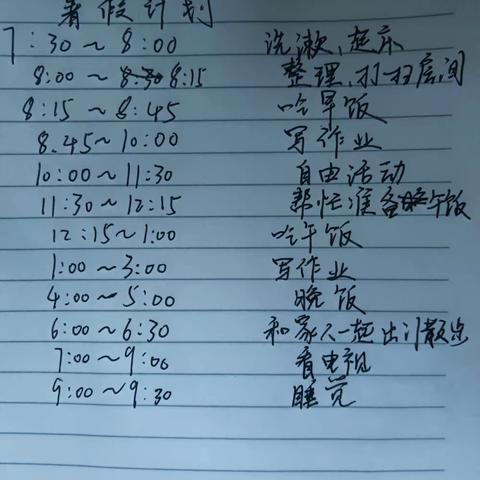 暑假计划
7:30~8:00 洗漱、起床
8:00~8:15 整理、打扫房间
8:15~8:45 吃早饭
8.45~10:00 写作业
10:00~11:30 自由活动
11:30~12:15 帮忙准备午饭
12:15~1:00 吃午饭
1:00~3:00 写作业
4:00~5:00 晚饭
6:00~6:30 和家人一起出门散步
7:00~9:00 看电视
9:00~9:30 睡觉